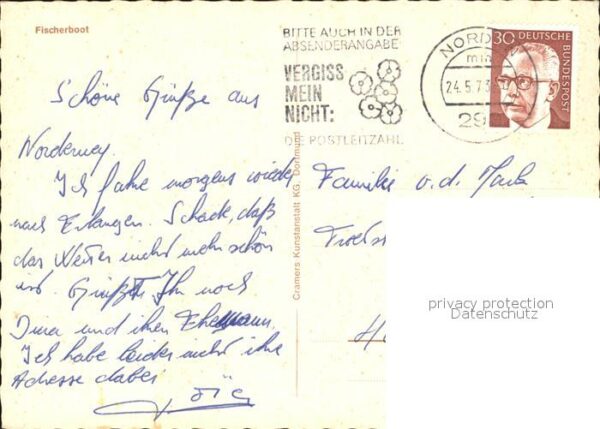 Fischerboot
BITTE AUCH IN DER
ABSENDERANGABE
VERGISS
MEIN
NICHT:
DIE POSTLEITZAHL
NORD
24.5.73
29
30 DEUTSCHE
BUNDESPOST
Schöne Grüße aus
Norderney.
Ich fahre morgens wieder
nach Erlangen. Schade, daß
das Wetter nicht mehr schön
ist. Grüßt Ihr noch
und ihren Ehemann.
Ich habe leider nicht ihre
Adresse dabei
Cramers Kunstanstalt KG. Dortmund
Familie v.d.
privacy protection
Datenschutz